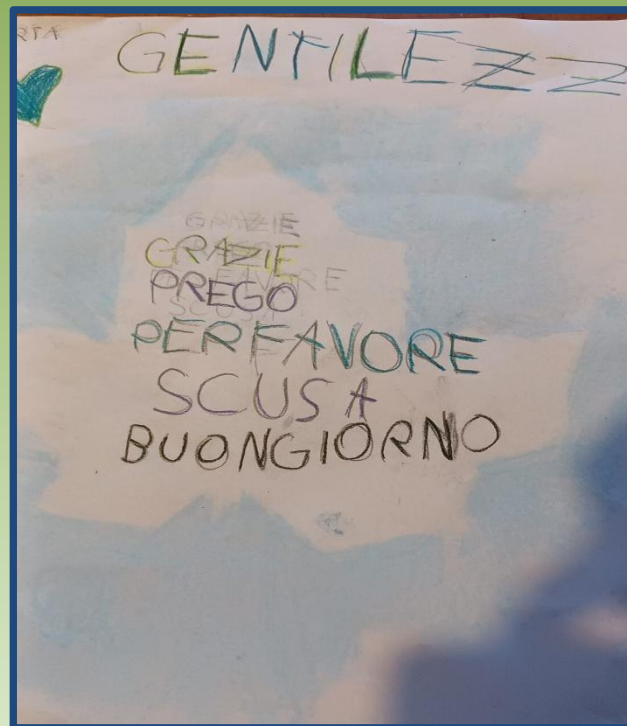 RTA
GENTILEZZ
GRAZIE
GRAZIE
PREGO
PERFAVORE
SCUSA
BUONGIORNO